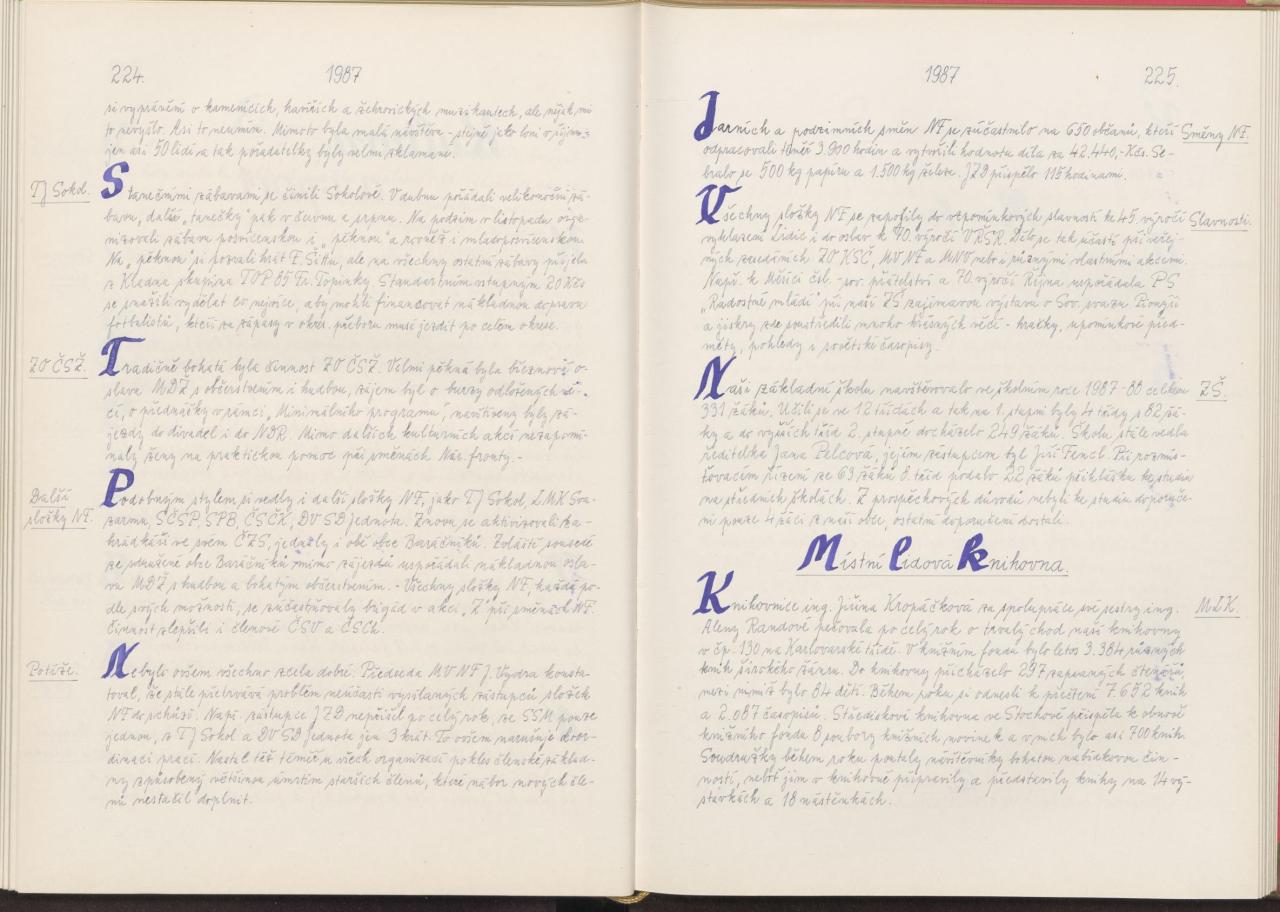 224. 1987
si vyprávění o kamenících, havířích a žehrovických muzikantech, ale nějak mi
to nevyšlo. Asi to neumím. Mimoto byla malá návštěva - stejně jako loni o říjnu -
jen asi 50 lidí a tak pořadatelky byly velmi zklamané.
TJ Sokol.
S tanečními zábavami se činili Sokolové. V dubnu pořádali velikonoční zá-
bavu, další „tanečky" pak v červnu a srpnu. Na podzim v listopadu orga-
nizovali zábavu posvícenskou i „pěknou" a rovněž i mladoposvícenskou.
Na „pěknou" si pozvali hrát F. Sittu, ale na všechny ostatní zábavy přijela
z Kladna skupina TOP 85 Fr. Topinky. Standartním vstupným 20 Kčs
se snažili vydělat co nejvíce, aby mohli financovat nákladnou dopravu
fotbalistů, kteří za zápasy v okres. přeboru musí jezdit po celém okrese.
ZO ČSŽ.
Tradičně bohatá byla činnost ZO ČSŽ. Velmi pěkná byla březnová o-
slava MDŽ s občerstvením i hudbou, zájem byl o burzy odložených vě-
cí, o přednášky v rámci „Minimálního programu", navštíveny byly zá-
jezdy do divadel i do NDR. Mimo dalších kulturních akcí nezapomí-
naly ženy na praktickou pomoc při směnách Nár. fronty. -
Další
složky NF.
Podobným stylem si vedly i další složky NF, jako TJ Sokol, ZMK Sva-
zarmu, SČSP, SPB, ČSČK, DV SD Jednota. Znovu se aktivizovali za-
hrádkáři ve svém ČZS, jednaly i obě obce Baráčníků. Zvláště sousedé
ze sdružené obce Baráčníků mimo zájezdů uspořádali nákladnou osla-
vu MDŽ s hudbou a bohatým občerstvením. - Všechny složky NF, každý po-
dle svých možností, se zúčastňovaly brigád v akci „Z" při směnách NF.
Činnost zlepšili i členové ČSV a ČSCh.
Potíže.
Nebylo ovšem všechno zcela dobré. Předseda MV NF J. Vydra konsta-
toval, že stále přetrvává problém neúčasti vysílaných zástupců složek
NF do schůzí. Např. zástupce JZD nepřišel po celý rok, ze SSM pouze
jednou, z TJ Sokol a DV SD Jednota jen 3 krát. To ovšem narušuje koor-
dinaci prací. Nastal též téměř u všech organizací pokles členské základ-
ny způsobený většinou úmrtím starších členů, které nábor nových čle-
nů nestačil doplnit.
1987 225.
Jarních a podzimních směn NF se zúčastnilo na 650 občanů, kteří
Směny NF.
odpracovali téměř 3.900 hodin a vytvořili hodnotu díla za 42.440,- Kčs. Se-
bralo se 500 kg papíru a 1.500 kg železa. JZD přispělo 115 hodinami.
Všechny složky NF se zapojily do vzpomínkových slavností ke 45. výročí
Slavnosti.
vyhlazení Lidic, i do oslav k 70. výročí VŘSR. Dělo se tak účastí při veřej-
ných zasedáních ZO KSČ, MV NF a MNV nebo i různými vlastními akcemi.
Např. k Měsíci čsl. - sov. přátelství a 70. výročí Října uspořádala PS
„Radostné mládí" při naší ZŠ zajímavou výstavu o Sov. svazu. Pionýři
a jiskry zde soustředili mnoho krásných věcí - hračky, upomínkové před-
měty, pohledy i sovětské časopisy.
Naši základní školu navštěvovalo ve školním roce 1987-88 celkem
ZŠ.
331 žáků. Učili je ve 12 třídách a tak na 1. stupni byly 4 třídy s 82 žá-
ky a do vyšších tříd 2. stupně docházelo 249 žáků. Školu stále vedla
ředitelka Jana Pelcová, jejím zástupcem byl Jiří Fencl. Při rozmis-
ťovacím řízení ze 63 žáků 8. tříd podalo 22 žáků přihlášku ke studiu
na středních školách. Z prospěchových důvodů nebyli ke studiu doporuče-
ni pouze 4 žáci z naší obce, ostatní doporučení dostali.
Místní lidová knihovna.
Knihovnice ing. Jiřina Kropáčková za spolupráce své sestry ing.
MLK.
Aleny Randové pečovala po celý rok o trvalý chod naší knihovny
v čp. 130 na Karlovarské třídě. V knižním fondu bylo letos 3.384 různých
knih širokého žánru. Do knihovny přicházelo 297 zapsaných čtenářů,
mezi nimiž bylo 84 dětí. Během roku si odnesli k přečtení 7.652 knih
a 2.087 časopisů. Středisková knihovna ve Stochově přispěla k obnově
knižního fondu 8 soubory knižních novinek a v nich bylo asi 700 knih.
Soudružky během roku poutaly návštěvníky bohatou nabídkovou čin-
ností, neboť jim v knihovně připravily a představily knihy na 14 vý-
stavkách a 18 nástěnkách.